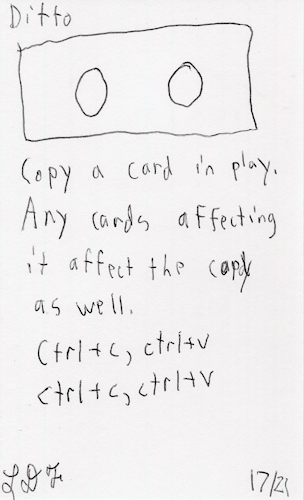 Ditto
Copy a card in play.
Any cards affecting
it affect the copy
as well.
Ctrl+c, ctrl+v
ctrl+c, ctrl+v
17/21